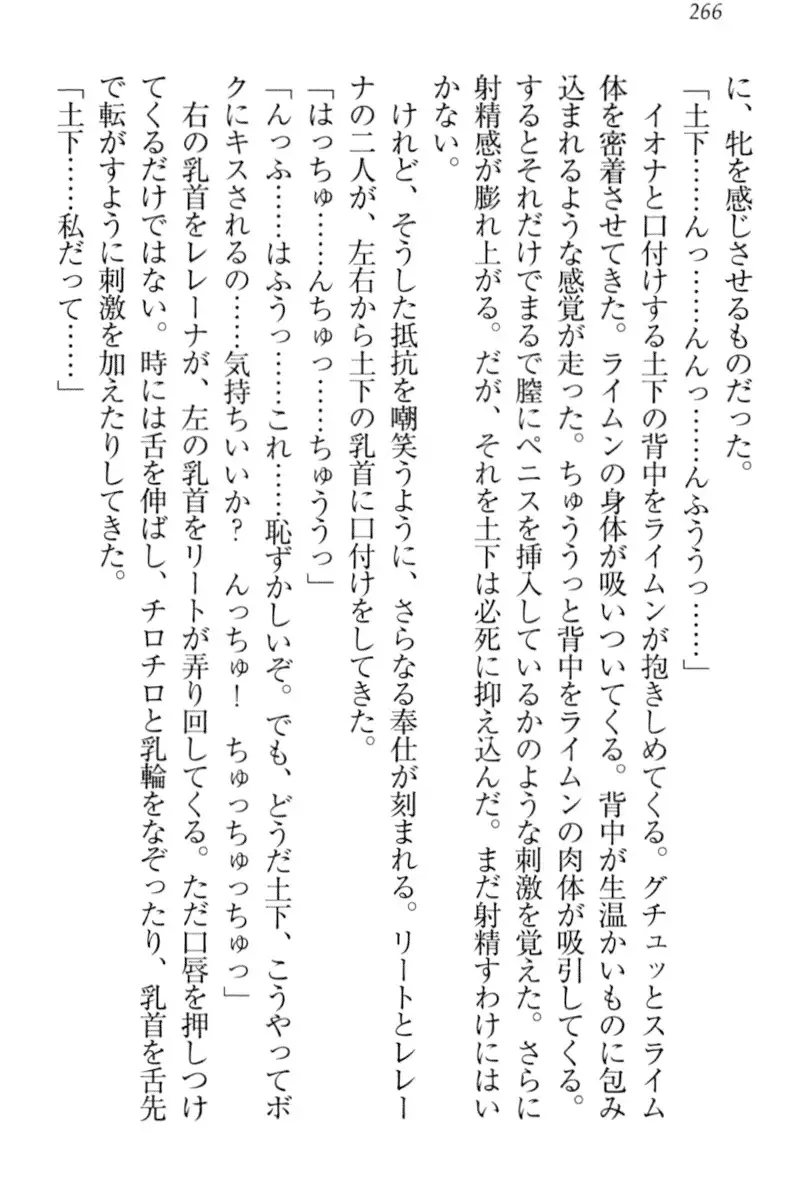 266
に、牝を感じさせるものだった。
「土下……んっ……んんっ……んふううっ……」
イオナと口付けする土下の背中をライムンが抱きしめてくる。グチュッとスライム
体を密着させてきた。ライムンの身体が吸いついてくる。背中が生温かいものに包み
込まれるような感覚が走った。ちゅううっと背中をライムンの肉体が吸引してくる。
するとそれだけでまるで膣にペニスを挿入しているかのような刺激を覚えた。さらに
射精感が膨れ上がる。だが、それを土下は必死に抑え込んだ。まだ射精すわけにはい
かない。
けれど、そうした抵抗を嘲笑うように、さらなる奉仕が刻まれる。リートとレレー
ナの二人が、左右から土下の乳首に口付けをしてきた。
「はっちゅ……んちゅっ……ちゅううっ」
「んっふ……はふうっ……これ……恥ずかしいぞ。でも、どうだ土下、こうやってボ
クにキスされるの……気持ちいいか？　んっちゅ！　ちゅっちゅっちゅっ」
右の乳首をレレーナが、左の乳首をリートが弄り回してくる。ただ口唇を押しつけ
てくるだけではない。時には舌を伸ばし、チロチロと乳輪をなぞったり、乳首を舌先
で転がすように刺激を加えたりしてきた。
「土下……私だって……」